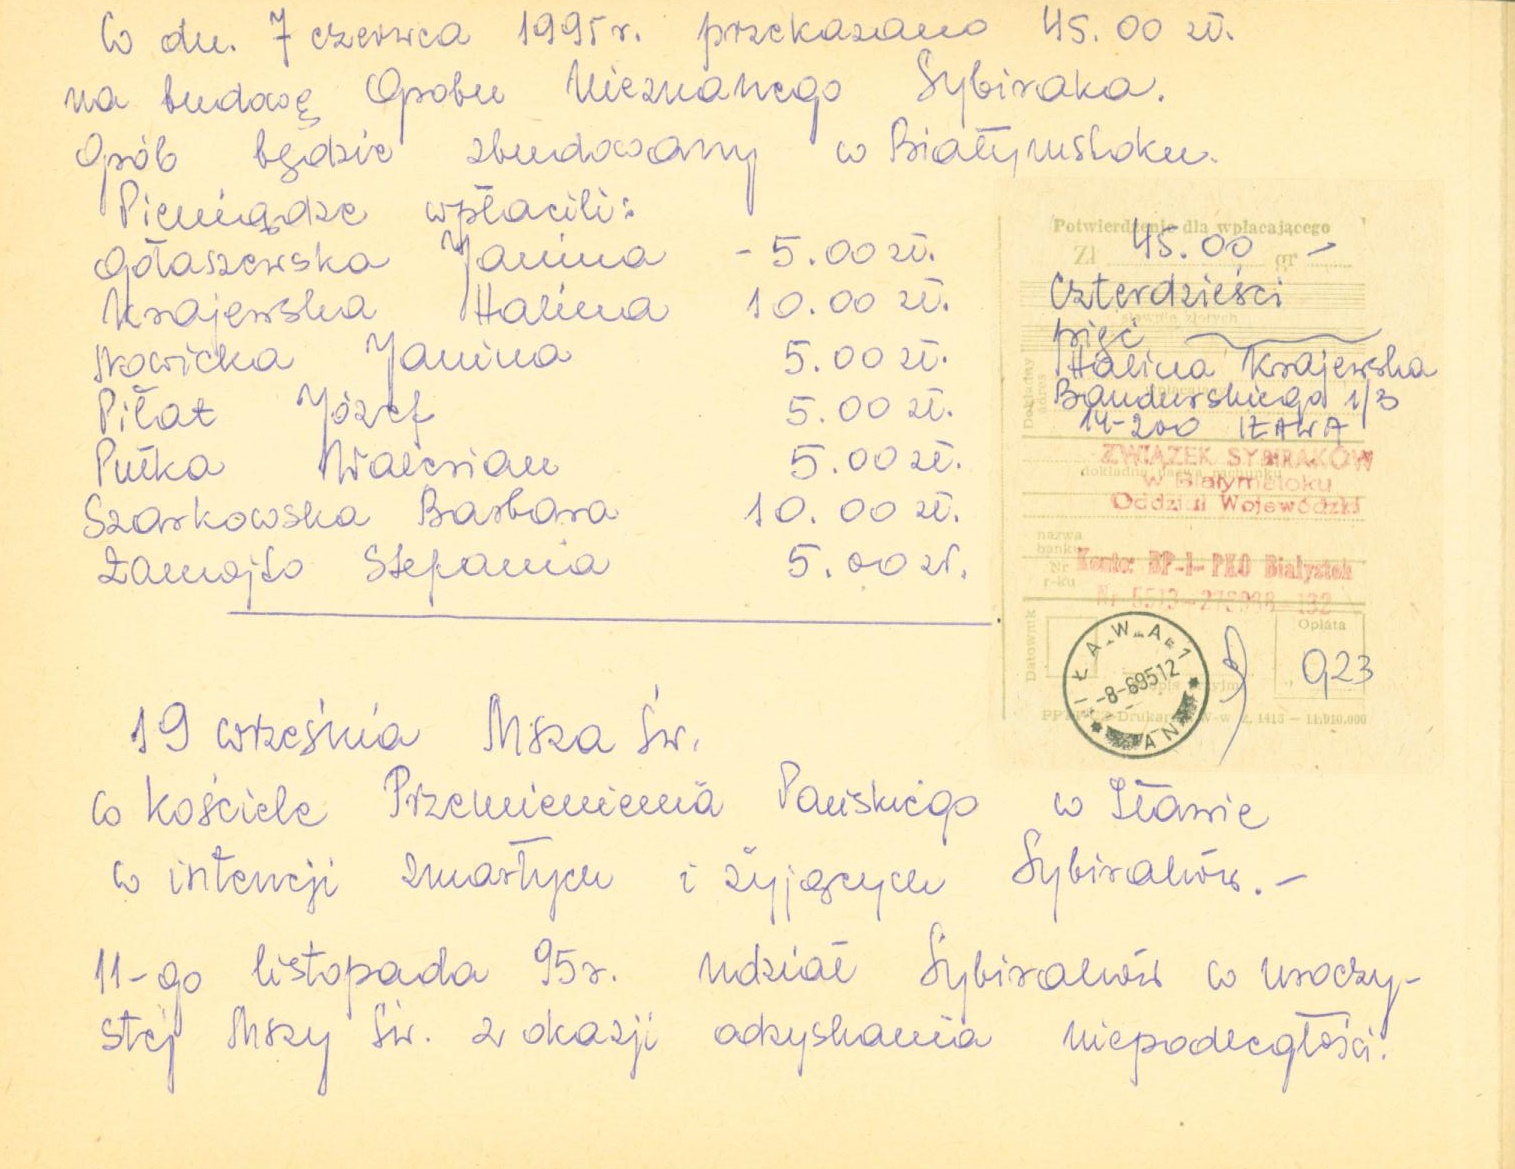 W dn. 7 czerwca 1995r. przekazano 45.00 zł.
na budowę Grobu Nieznanego Sybiraka.
Grób będzie zbudowany w Białymstoku.
Pieniądze wpłacili:
Gołaszewska Janina - 5.00 zł.
Krajewska Halina 10.00 zł.
Nowicka Janina 5.00 zł.
Piłat Józef 5.00 zł.
Pułka Walerian 5.00 zł.
Szarkowska Barbara 10.00 zł.
Żamojto Stefania 5.00 zł.
Potwierdzenie dla wpłacającego
Zł 45.00 gr -
czterdzieści
słownie złotych
pięć
Halina Krajewska
Bandurskiego 1/3
14-200 IŁAWA
Dokładny adres
ZWIĄZEK SYBIRAKÓW
w Białymstoku
Oddział Wojewódzki
nazwa banku
Nr r-ku
Konto: BP-I- PKO Białystok
Datownik
IŁAWA 1
-8-69512
Opłata
0,23
19 września Msza Św.
w kościele Przemienienia Pańskiego w Iławie
w intencji zmarłych i żyjących Sybiraków.-
11-go listopada 95r. udział Sybiraków w uroczy-
stej Mszy Św. z okazji odzyskania niepodległości.